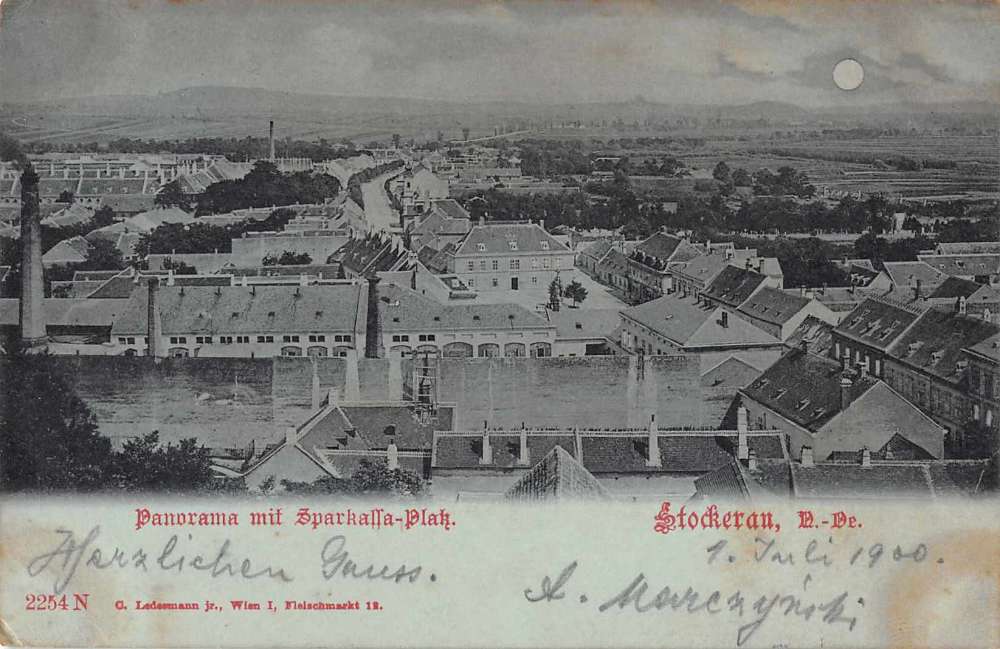 Panorama mit Sparkassa-Platz.
Stockerau, N.-Oe.
Herzlichen Gruss.
1. Juli 1900.
A. Marczyński
2254 N
C. Ledermann jr., Wien I, Fleischmarkt 12.